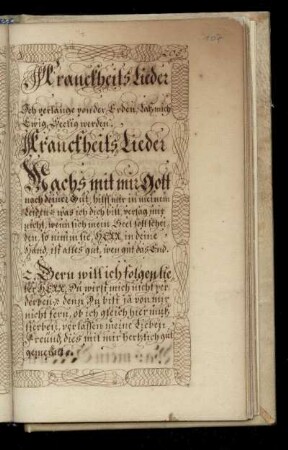 Kranckheits Lieder
Ich verlange von der Erden, Laß mich
Ewig, Seelig werden.
Kranckheits Lieder
Machs mit mir Gott
nach deiner Güt, hilff mir in meinem
Leiden, was ich dich bitt, versag mir
nicht, wenn sich mein Seel soll schei-
den, so nim sie, HErr, in deine
Händ, ist alles gut, wen gut das End.
2. Gern will ich folgen lie-
ber HErr, Du wirst mich nicht ver-
derben, denn Du bist ja von mir
nicht fern, ob ich gleich hier muß
sterben, verlassen meine Lieben
Freund, dies mit mir hertzlich gut
gemeint.